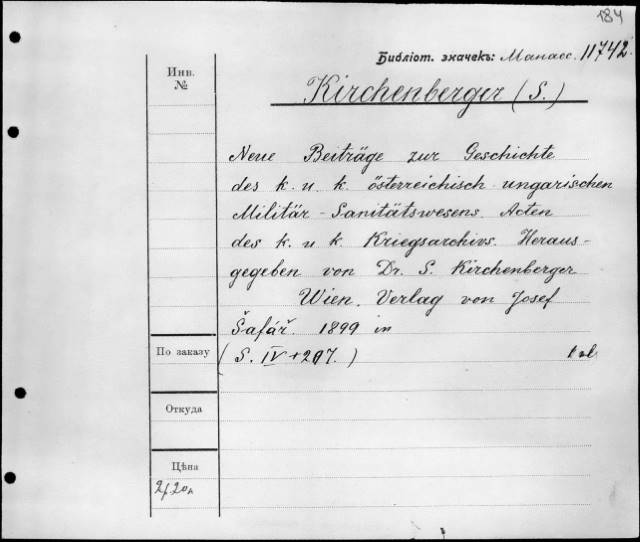 184
Библіот. значекъ: Манасс. 11742.
Инв.
№
Kirchenberger (S.)
Neue Beiträge zur Geschichte
des k. u. k. österreichisch-ungarischen
Militär-Sanitätswesens. Acten
des k. u. k. Kriegsarchivs. Heraus-
gegeben von Dr. S. Kirchenberger
Wien. Verlag von Josef
Šafář. 1899 in
По заказу
(S. IV + 207.)
Откуда
Цѣна